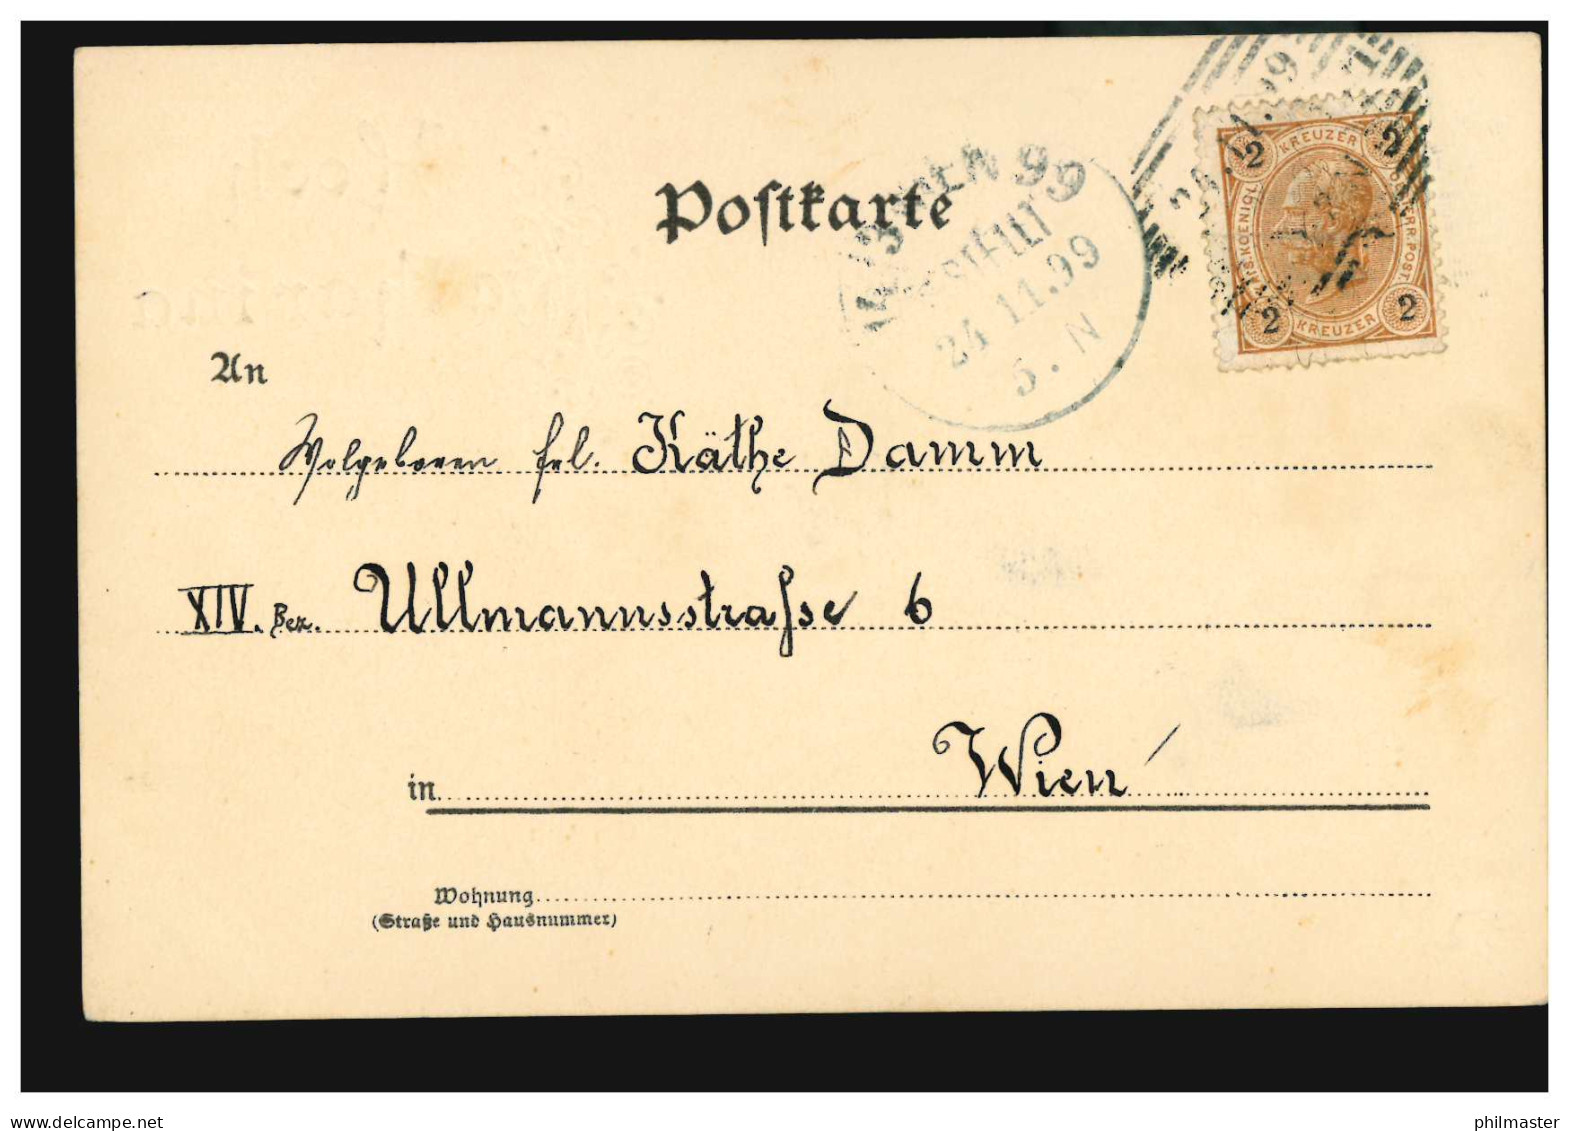 Postkarte
99
24 11.99
5. N
2 KREUZER 2
2 KREUZER 2
An
Wolgeboren frl. Käthe Damm
XIV. Bez. Ullmannsstraße 6
in Wien
Wohnung
(Straße und Hausnummer)
www.delcampe.net
philmaster